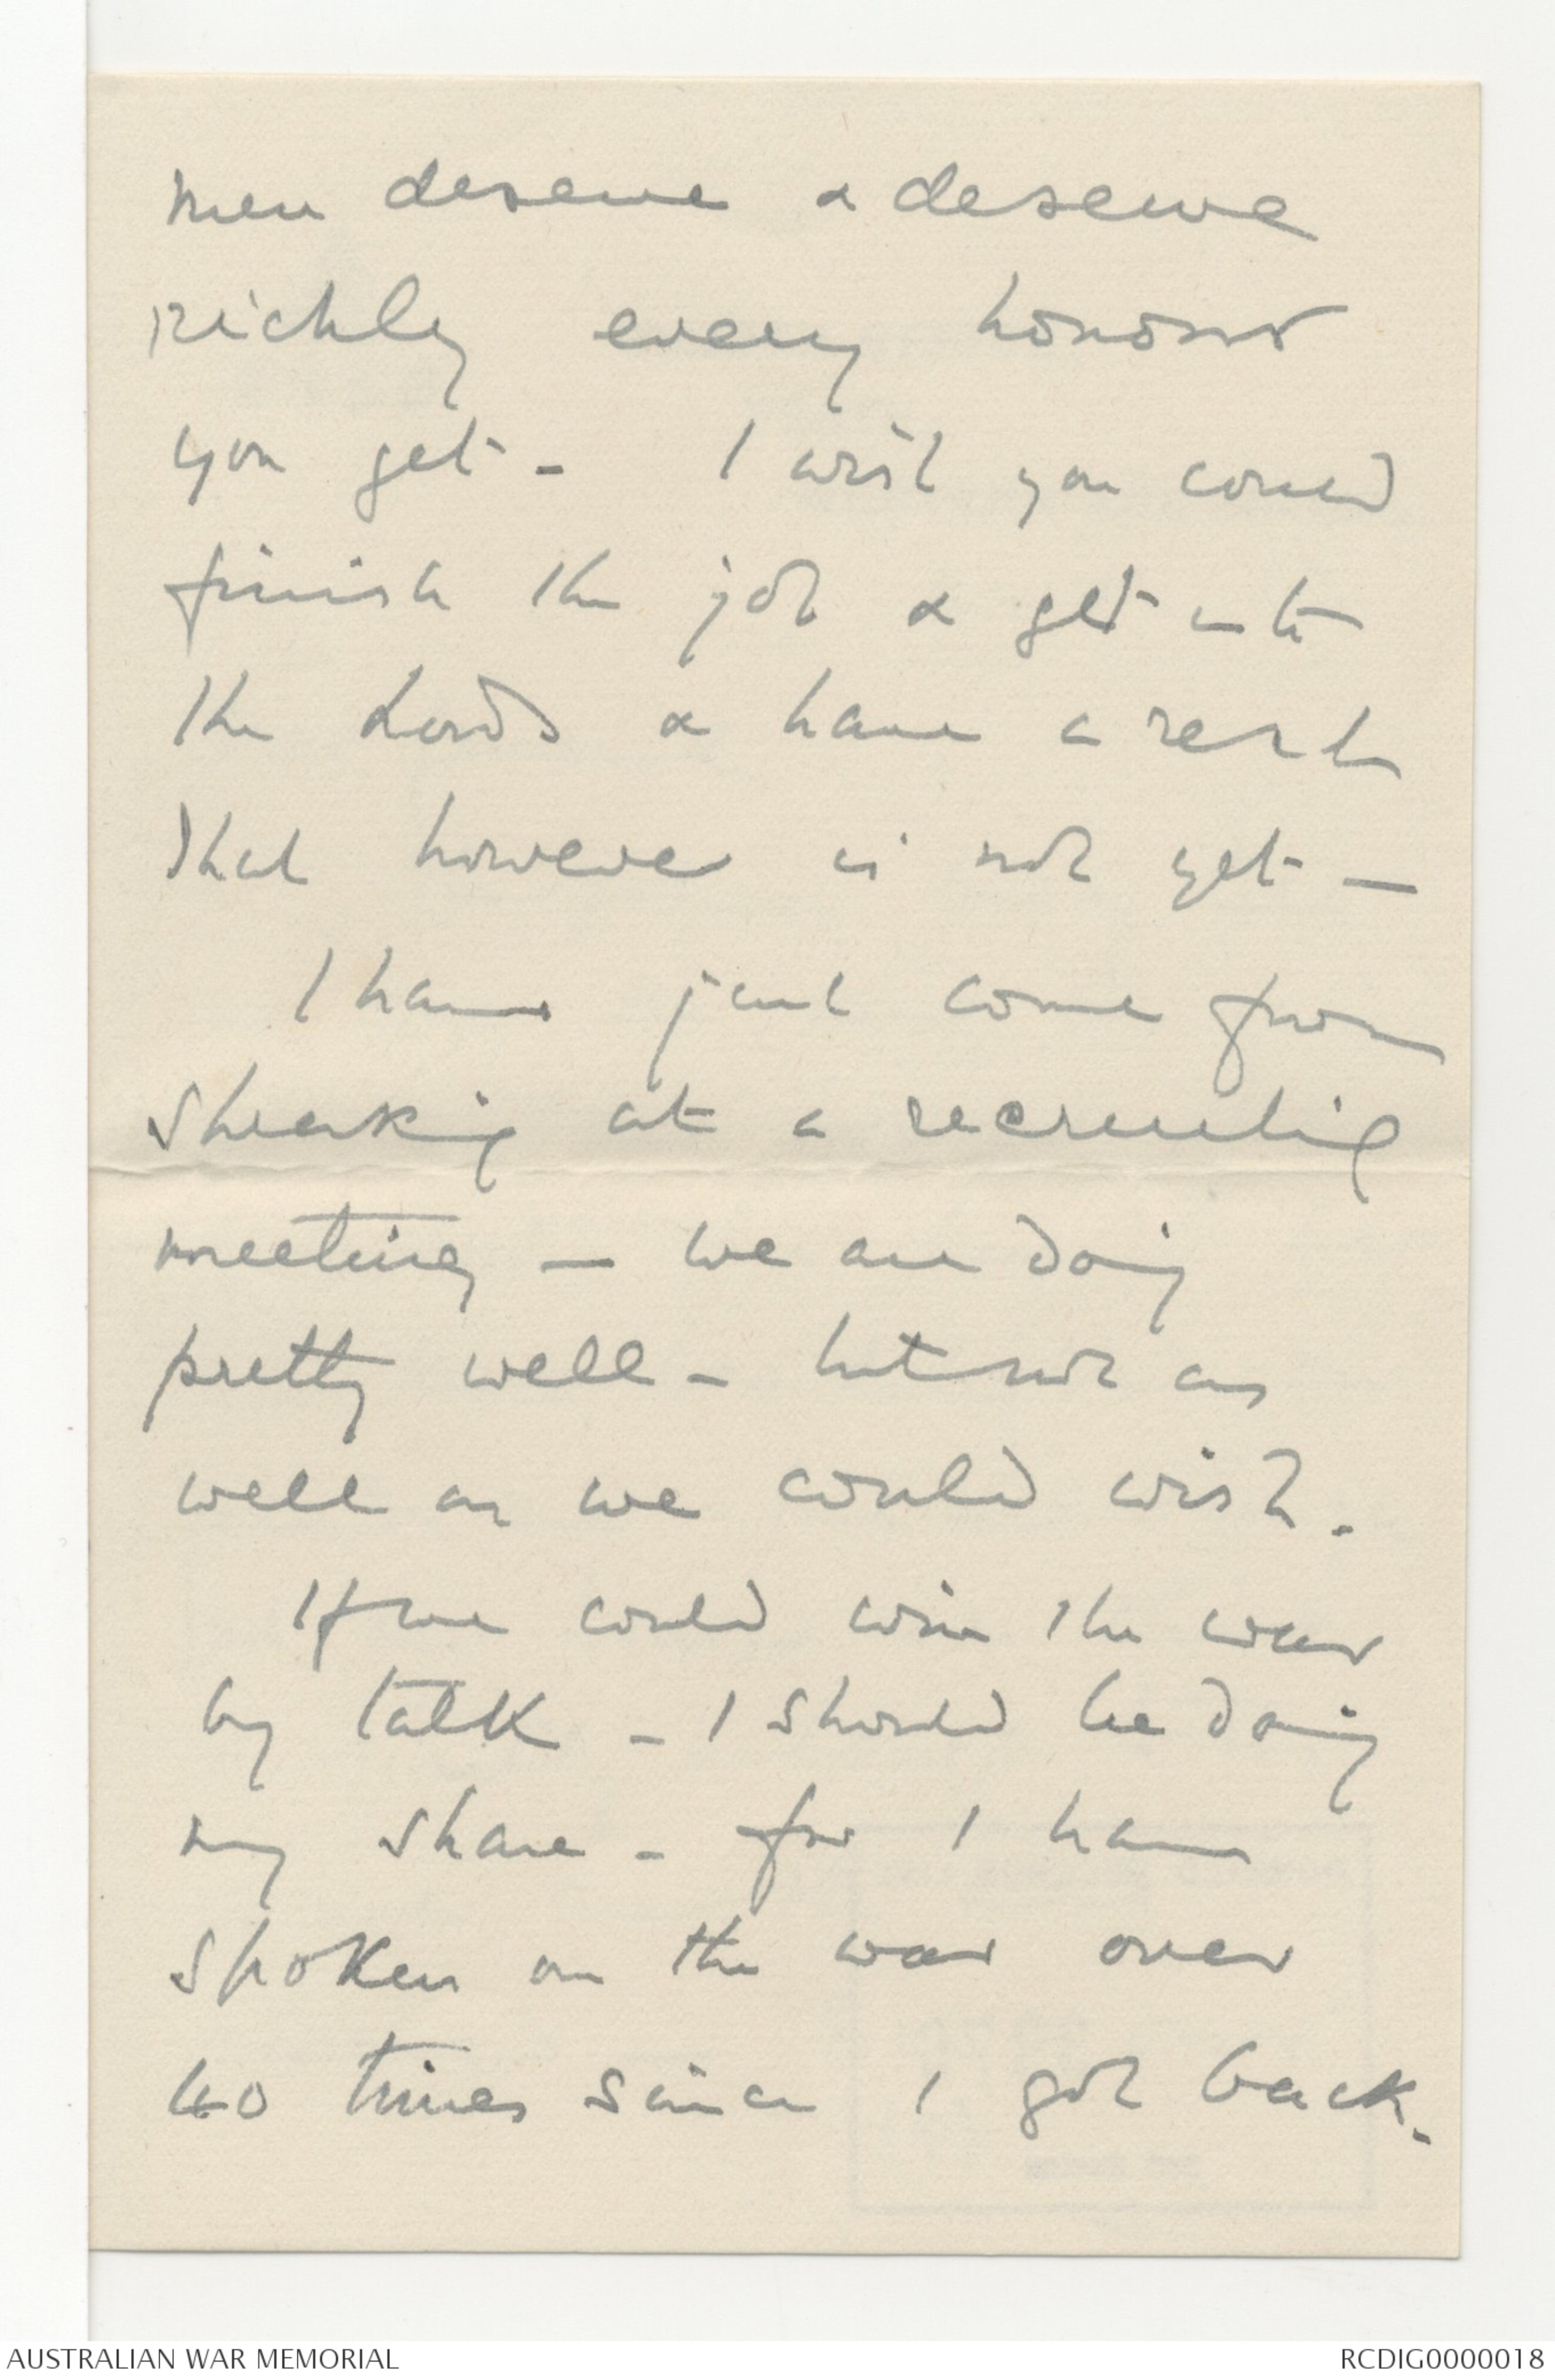 men deserve & deserve
richly every honour
you get - I wish you could
finish the job & get into
the Lords & have a rest
That however is not yet -
I have just come from
speaking at a recruiting
meeting - we are doing
pretty well - but not as
well as we could wish.
If we could win the war
by talk - I should be doing
my share - for I have
spoken on the war over
40 times since I got back.
AUSTRALIAN WAR MEMORIAL
RCDIG0000018